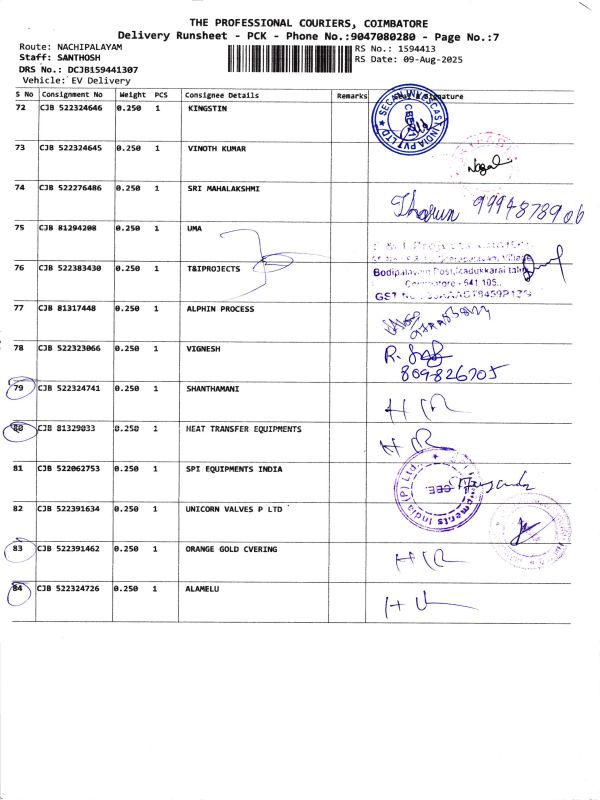 THE PROFESSIONAL COURIERS, COIMBATORE
Delivery Runsheet - PCK - Phone No.:9047080280 - Page No.:7
Route: NACHIPALAYAM
RS No.: 1594413
Staff: SANTHOSH
RS Date: 09-Aug-2025
DRS No.: DCJB159441307
Vehicle: EV Delivery
S No Consignment No Weight PCS Consignee Details Remarks Signature
72 CJB 522324646 0.250 1 KINGSTIN
73 CJB 522324645 1 VINOTH KUMAR
0.250
74 CJB 522276486 0.250 1 SRI MAHALAKSHMI
Tharun 9994878906
75 CJB 81294208 0.250 1 UMA
76 CJB 522383430 0.250 1 T&IPROJECTS
Bodipalayam Post, Madukkarai
Coimbatore - 641 105
77 CJB 81317448 0.250 1 ALPHIN PROCESS
78 CJB 522323066 0.250 1 VIGNESH
R.
809826705
79 CJB 522324741 0.250 1 SHANTHAMANI
80 CJB 81329033 0.250 1 HEAT TRANSFER EQUIPMENTS
81 CJB 522062753 0.250 1 SPI EQUIPMENTS INDIA
India (P) Ltd.
CBE
82 CJB 522391634 0.250 1 UNICORN VALVES P LTD
83 CJB 522391462 0.250 1 ORANGE GOLD CVERING
84 CJB 522324726 0.250 1 ALAMELU